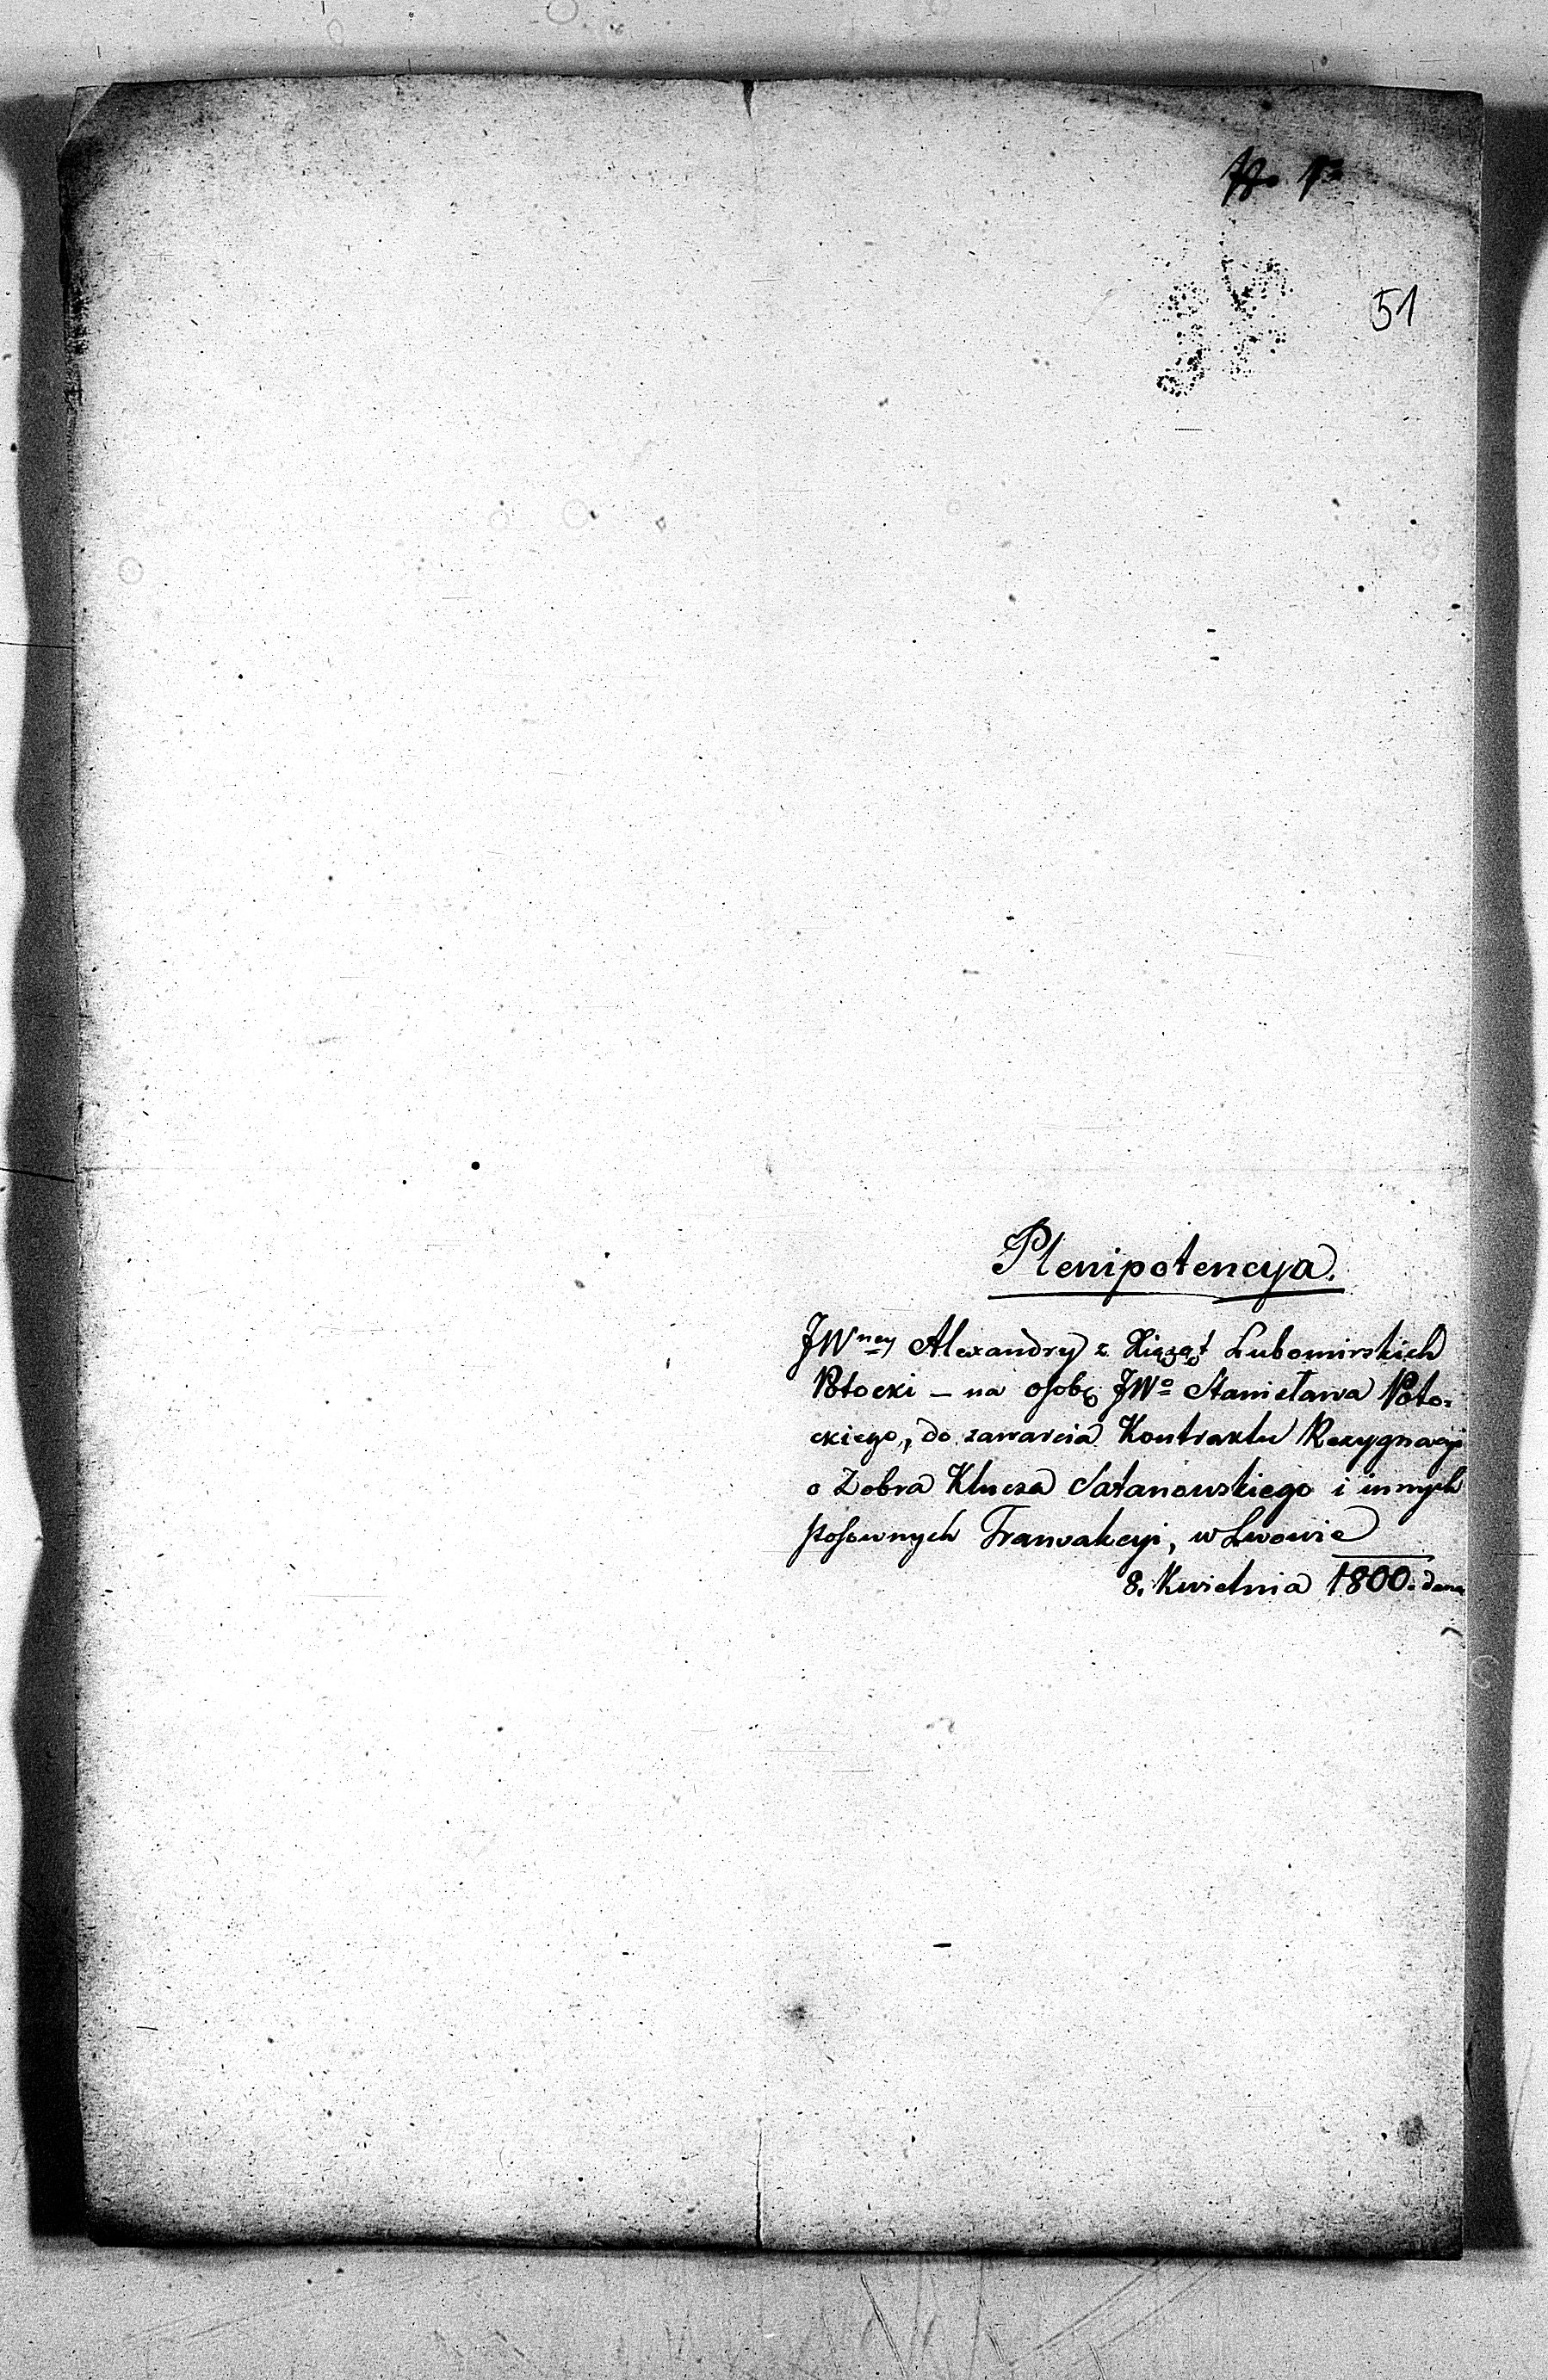 51
Plenipotencya.
JWney Alexandry z Xiążąt Lubomirskich
Potocki – na osobę JWo Stanisława Poto=
ckiego, do zawarcia Kontraktu Rezygnacyi
o Dobra Klucza Satanowskiego i innych
stosownych Tranzakcyi, w Lwowie
8. Kwietnia 1800. dana